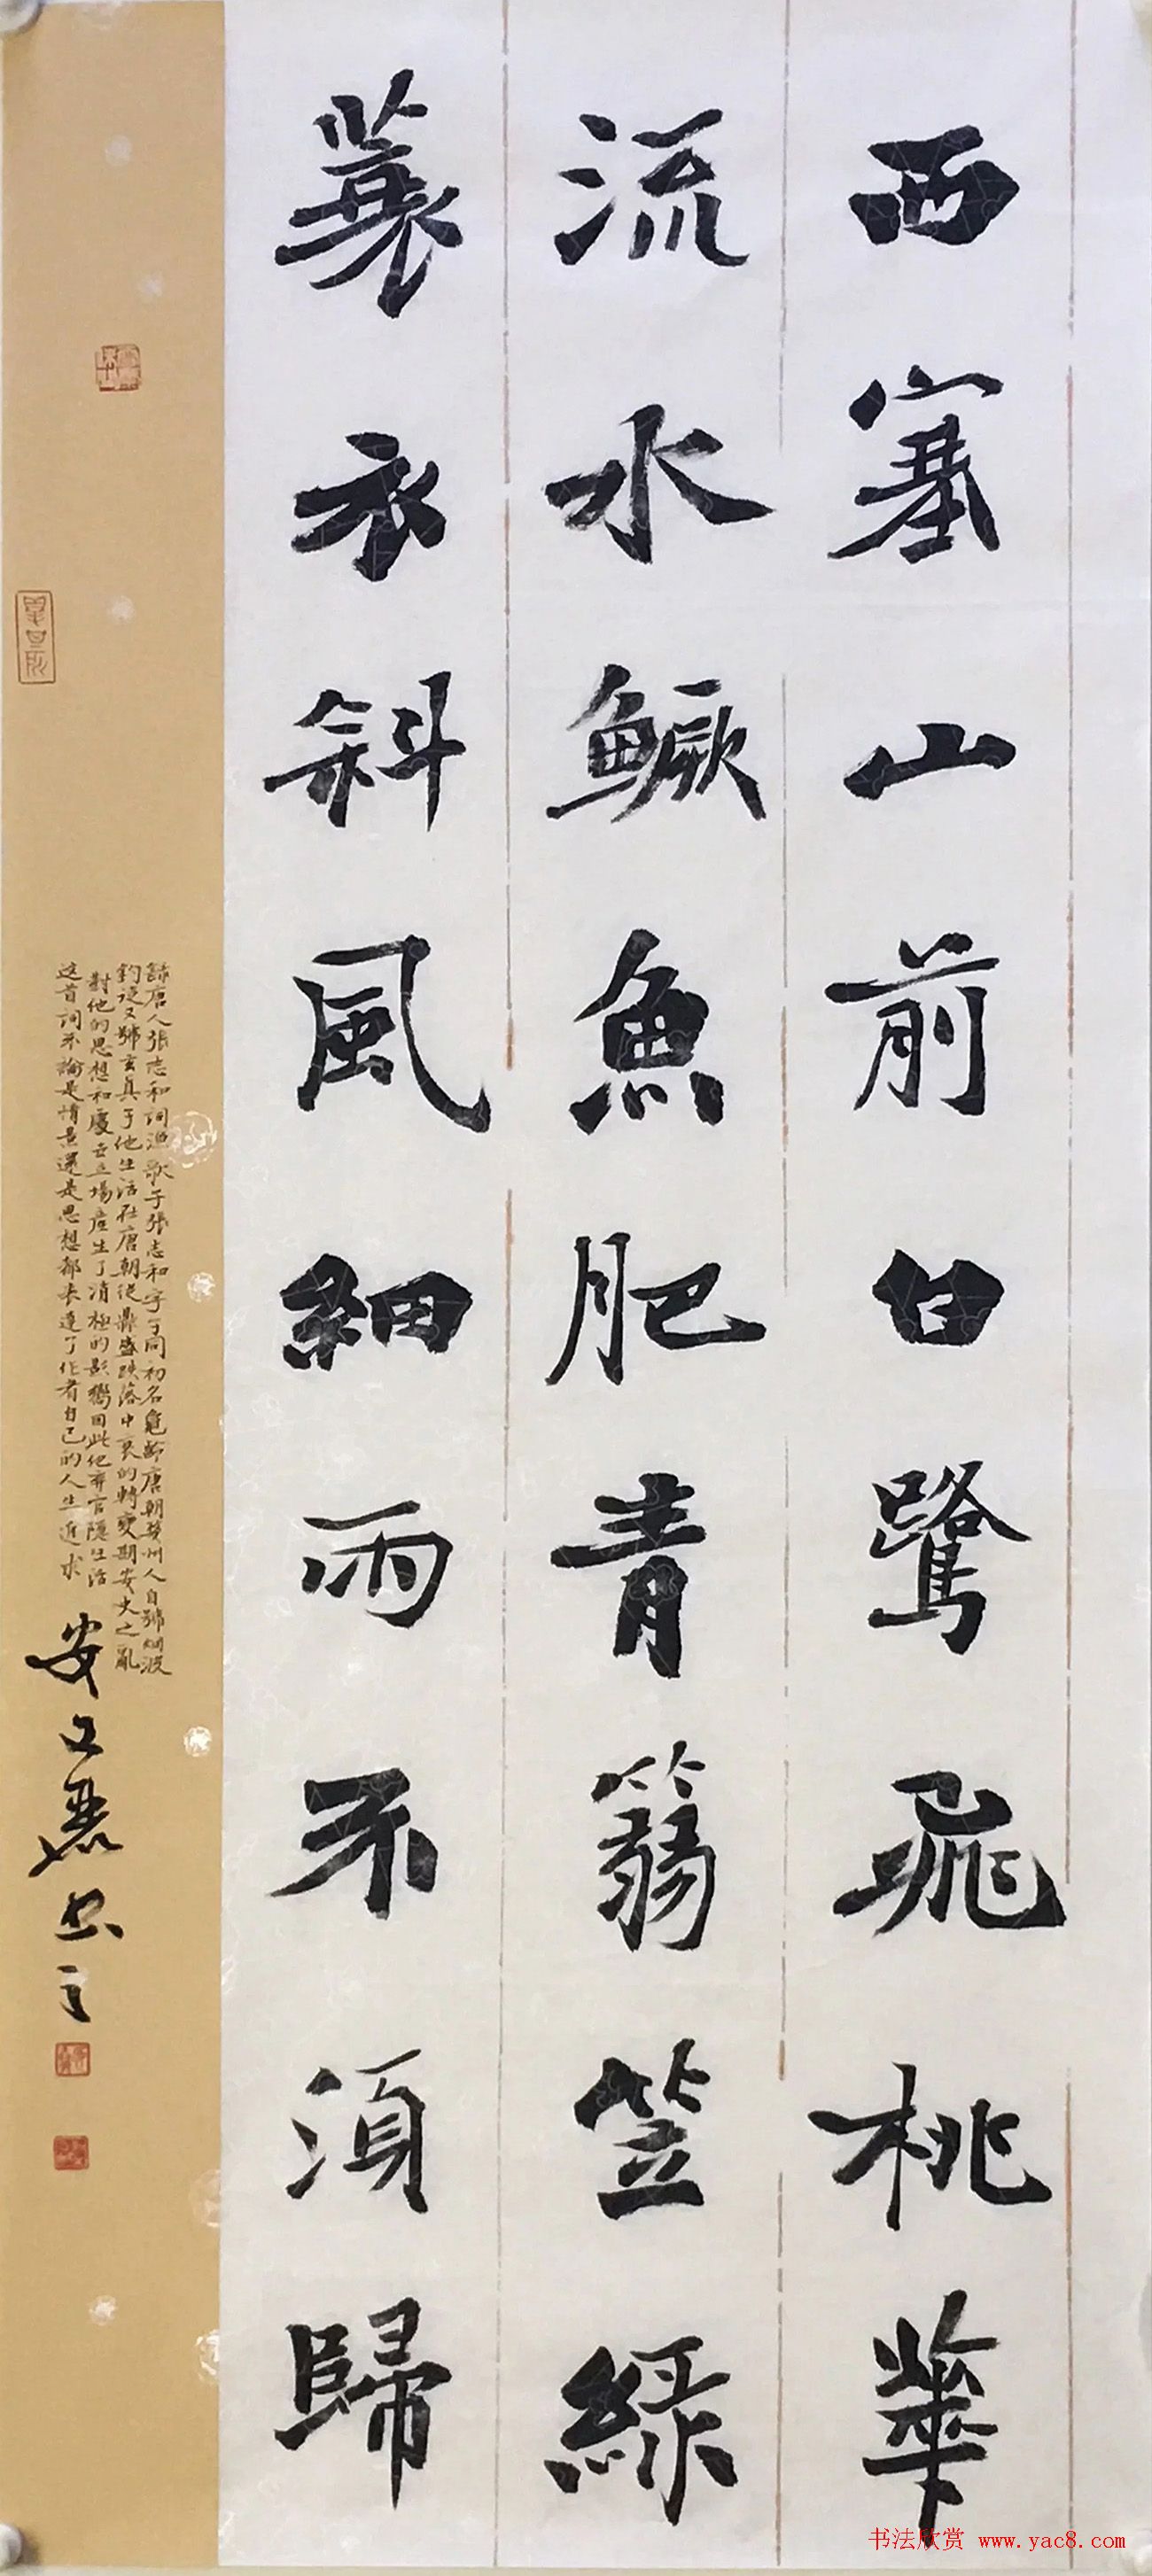 西塞山前白鷺飛桃華
流水鱖魚肥青箬笠綠
蓑衣斜風細雨不須歸
錄唐人張志和詞漁歌子張志和字子同初名龜齡唐朝婺州人自號烟波
釣徒又號玄真子他生活在唐朝從鼎盛跌落中衰的轉變期安史之亂
對他的思想和處世立場產生了消極的影響因此他弃官隱生活
这首詞不論是情景還是思想都表達了作者自己的人生追求
安文麗书
书法欣赏 www.yac8.com